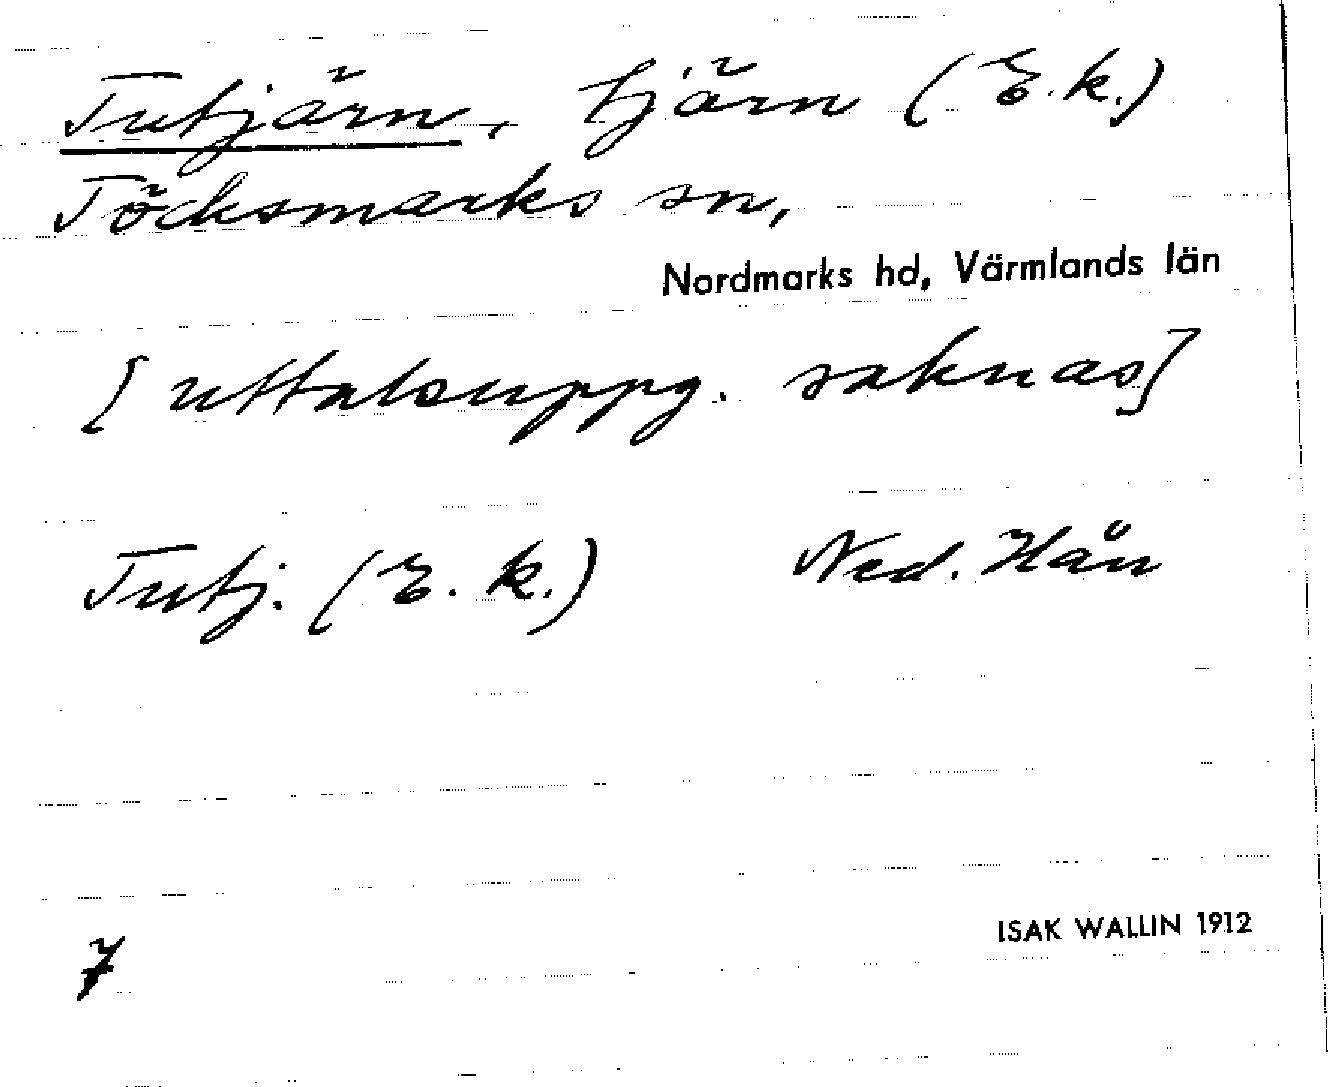 Tutjärn, tjärn (E.k.)
Töcksmarks sn,
Nordmarks hd, Värmlands län
[uttalsuppg. saknas]
Tutj. (E.k.) Ned. Hån
7
ISAK WALLIN 1912